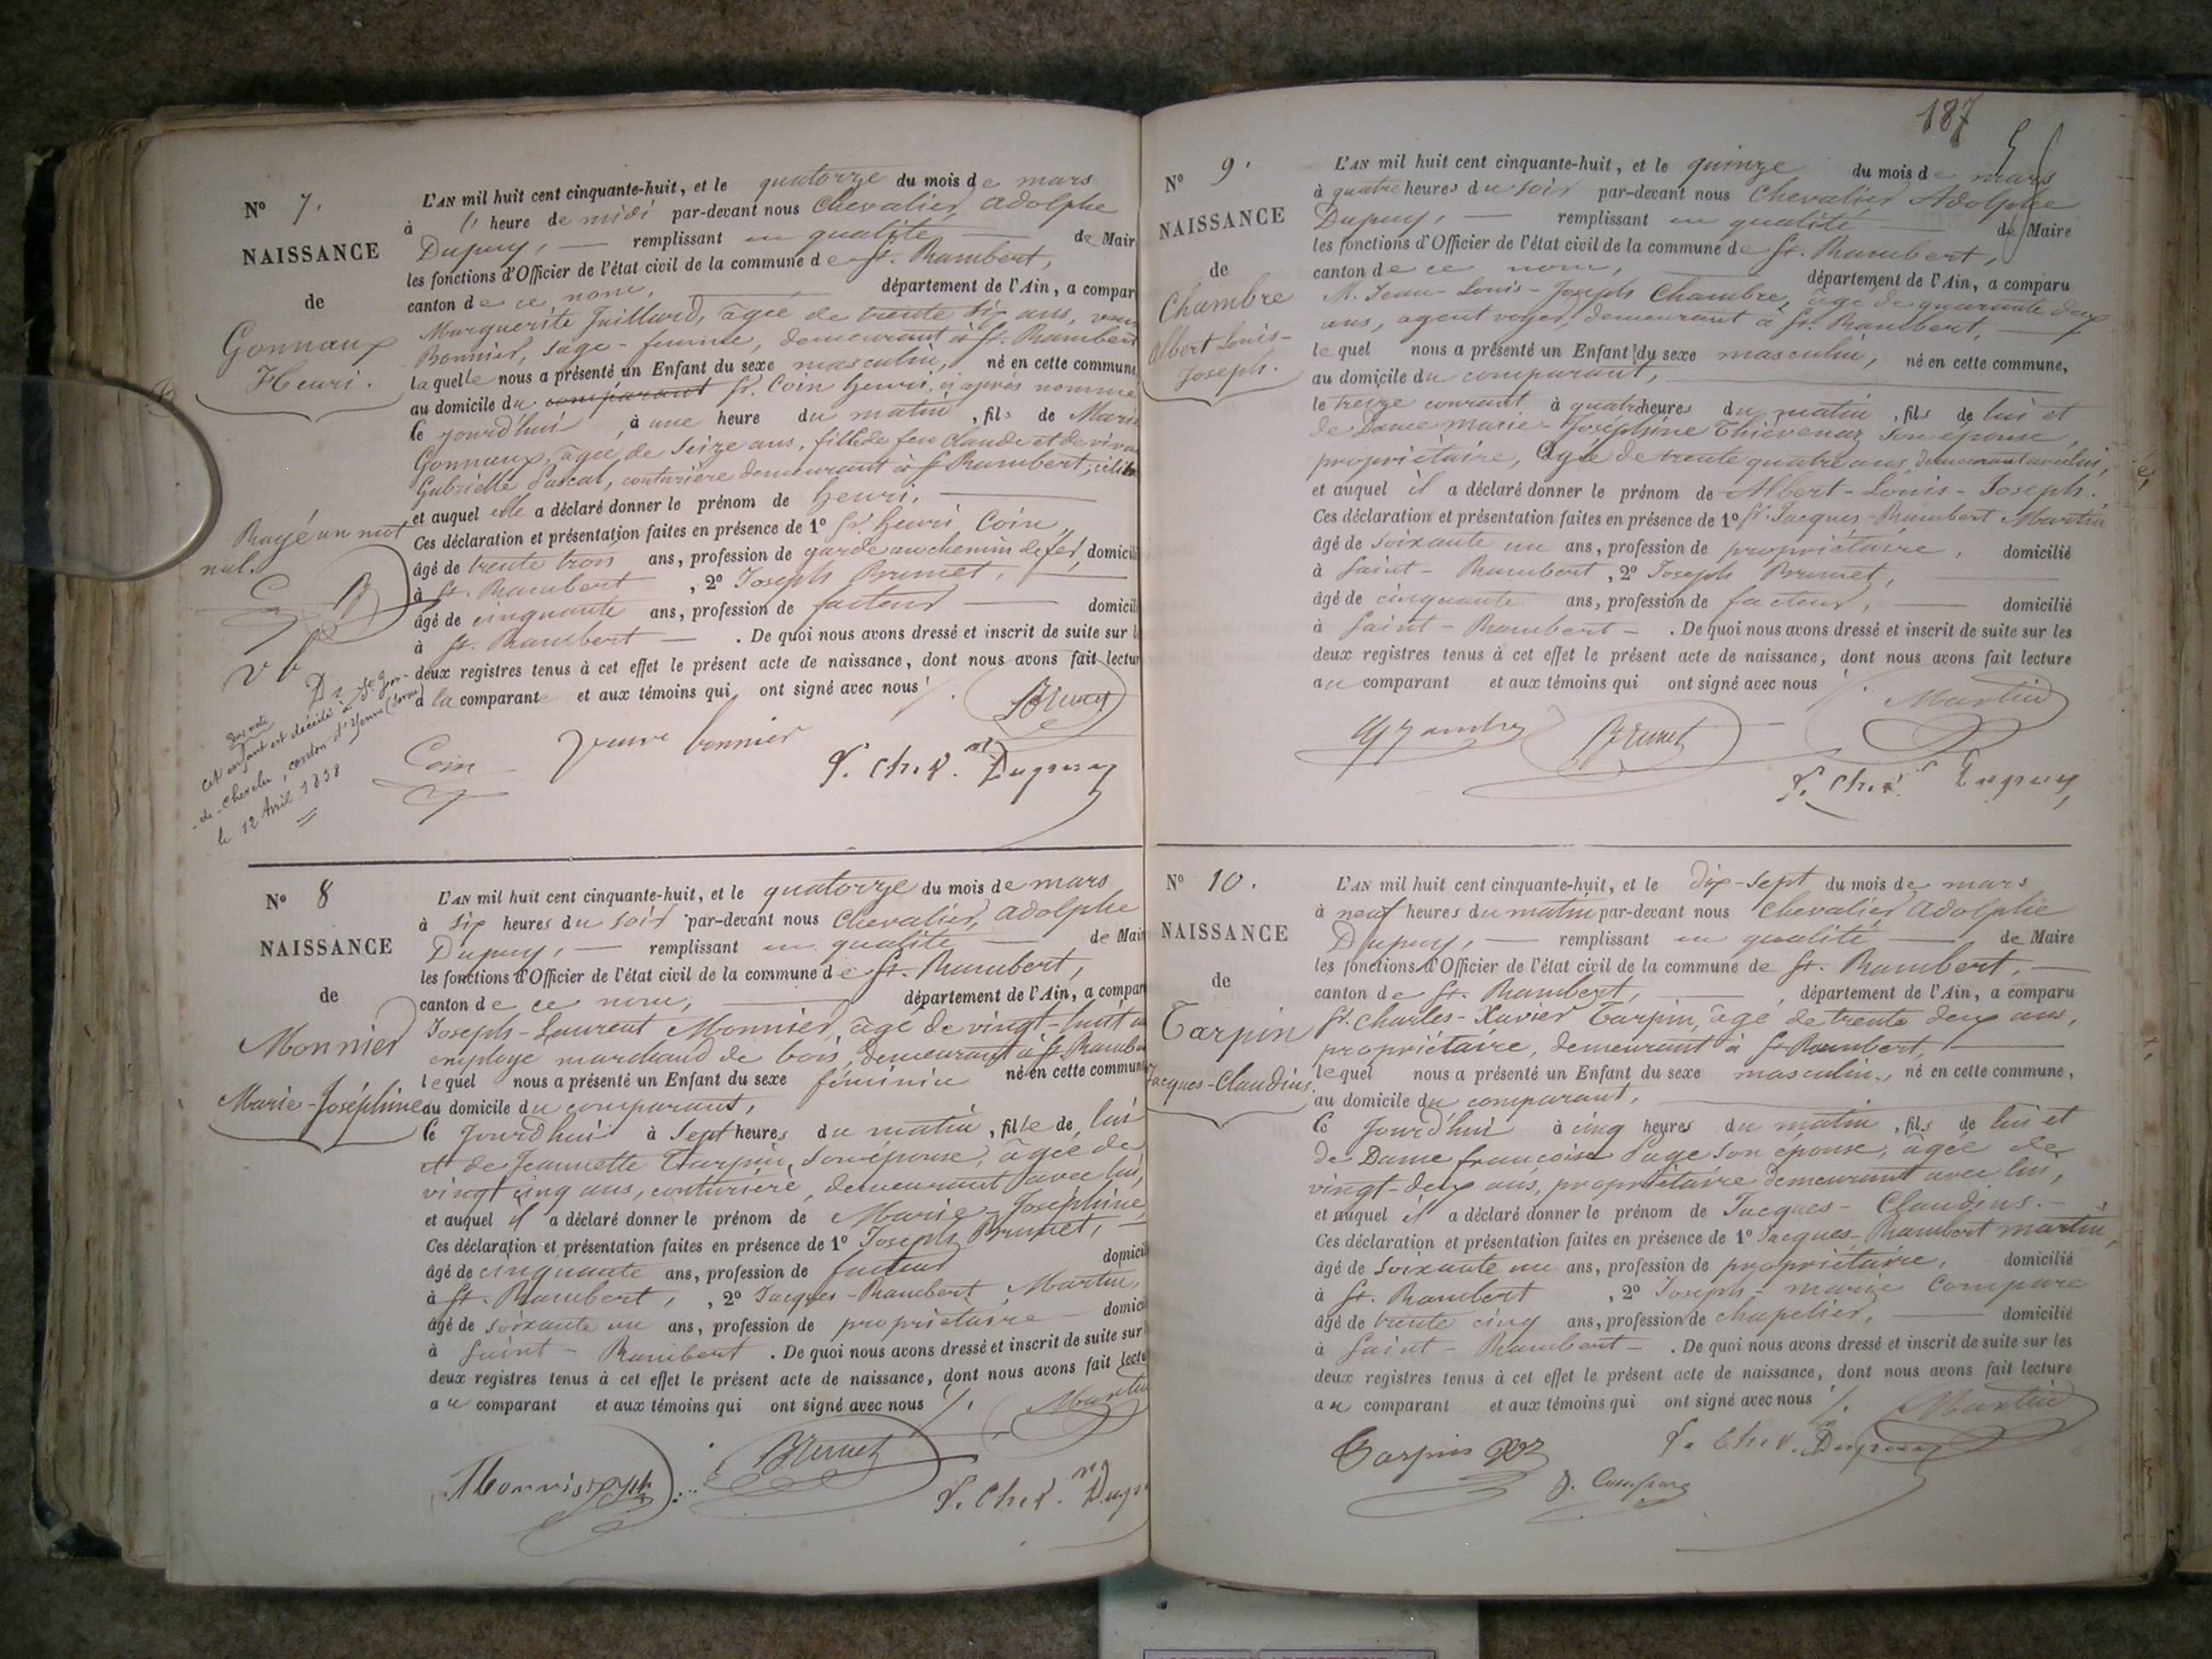 N° 7.
NAISSANCE
de
Gonnaux
Henri.
Rayé un mot
nul.
C B
V b
D
Cet enfant est décédé à St. Jean-
-de-Chevelu, canton d'Yenne
le 12 Avril 1858
L'AN mil huit cent cinquante-huit, et le quatorze du mois de mars
à l' heure de midi par-devant nous Chevalier, Adolphe
Dupuy, — remplissant en qualité — de Mair
les fonctions d'Officier de l'état civil de la commune de St. Rambert,
canton de ce nom, — département de l'Ain, a compar
Marguerite Juillard, âgée de trente six ans, veuve
Bonnier, sage-femme, demeurant à St. Rambert
laquelle nous a présenté un Enfant du sexe masculin, né en cette commune,
au domicile du comparant Sr. Coin henri, ci après nommé
Ce jourd'hui, à une heure du matin, fils de Marie
Gonnaux, âgée de seize ans, fille de feu Claude et de vivan
Gabrielle Pascal, couturière demeurant à St Rambert,
et auquel elle a déclaré donner le prénom de henri. —
Ces déclaration et présentation faites en présence de 1° Sr. henri Coin,
âgé de trente trois ans, profession de garde au chemin de fer, domicili
à St. Rambert, 2° Joseph Brunet, —
âgé de cinquante ans, profession de facteur — domicili
à St. Rambert — . De quoi nous avons dressé et inscrit de suite sur l
deux registres tenus à cet effet le présent acte de naissance, dont nous avons fait lectur
à la comparante et aux témoins qui ont signé avec nous /.
Brunet
Coin
veuve bonnier
P. Ch.r. Dupuy
N° 8
NAISSANCE
de
Monnier
Marie-Joséphine
L'AN mil huit cent cinquante-huit, et le quatorze du mois de mars
à six heures du soir par-devant nous Chevalier, Adolphe
Dupuy, — remplissant en qualité — de Mair
les fonctions d'Officier de l'état civil de la commune de St. Rambert,
canton de ce nom, — département de l'Ain, a compar
Joseph-Laurent Monnier, âgé de vingt-huit an
employé marchand de bois, demeurant à St Rambe
lequel nous a présenté un Enfant du sexe féminin né en cette commun
au domicile du comparant,
Ce jourd'hui à sept heures du matin, fille de lui
et de Jeannette Tarpin, son épouse, âgée de
vingt cinq ans, couturière, demeurant avec lui,
et auquel il a déclaré donner le prénom de Marie-Joséphine,
Ces déclaration et présentation faites en présence de 1° Joseph Brunet, —
âgé de cinquante ans, profession de facteur domicili
à St. Rambert, , 2° Jacques-Rambert Martin,
âgé de soixante un ans, profession de propriétaire — domici
à Saint-Rambert . De quoi nous avons dressé et inscrit de suite sur
deux registres tenus à cet effet le présent acte de naissance, dont nous avons fait lectu
au comparant et aux témoins qui ont signé avec nous /.
Martin
Brunet
P. Ch.r. Dup
187
N° 9.
NAISSANCE
de
Chambre
Albert Louis-
Joseph.
L'AN mil huit cent cinquante-huit, et le quinze du mois de mars
à quatre heures du soir par-devant nous Chevalier Adolphe
Dupuy, — remplissant en qualité — de Maire
les fonctions d'Officier de l'état civil de la commune de St. Rambert,
canton de ce nom, — département de l'Ain, a comparu
M. Jean-Louis-Joseph Chambre, âgé de quarante deux
ans, agent voyer, demeurant à St. Rambert, —
lequel nous a présenté un Enfant du sexe masculin, né en cette commune,
au domicile du comparant, —
le treize courant à quatre heures du matin, fils de lui et
de Dame Marie-Joséphine Thievenaz son épouse,
propriétaire, âgée de trente quatre ans, demeurant avec lui,
et auquel il a déclaré donner le prénom de Albert-Louis-Joseph.
Ces déclaration et présentation faites en présence de 1° Sr. Jacques-Rambert Martin
âgé de soixante un ans, profession de propriétaire, domicilié
à Saint-Rambert, 2° Joseph Brunet, —
âgé de cinquante ans, profession de facteur, — domicilié
à Saint-Rambert — . De quoi nous avons dressé et inscrit de suite sur les
deux registres tenus à cet effet le présent acte de naissance, dont nous avons fait lecture
au comparant et aux témoins qui ont signé avec nous /.
Martin
Brunet
P. Ch.r. Dupuy
N° 10.
NAISSANCE
de
Tarpin
Jacques-Claudius.
L'AN mil huit cent cinquante-huit, et le dix-sept du mois de mars
à neuf heures du matin par-devant nous Chevalier Adolphe
Dupuy, — remplissant en qualité — de Maire
les fonctions d'Officier de l'état civil de la commune de St. Rambert, —
canton de St. Rambert, — , département de l'Ain, a comparu
Sr. Charles-Xavier Tarpin, âgé de trente deux ans,
propriétaire, demeurant à St Rambert, —
lequel nous a présenté un Enfant du sexe masculin, né en cette commune,
au domicile du comparant, —
Ce jourd'hui à cinq heures du matin, fils de lui et
de Dame françoise Page son épouse, âgée de
vingt-deux ans, propriétaire demeurant avec lui,
et auquel il a déclaré donner le prénom de Jacques-Claudius. —
Ces déclaration et présentation faites en présence de 1° Jacques-Rambert Martin,
âgé de soixante un ans, profession de propriétaire, domicilié
à St. Rambert , 2° Joseph-marie Compare
âgé de trente cinq ans, profession de chapelier, — domicilié
à Saint-Rambert — . De quoi nous avons dressé et inscrit de suite sur les
deux registres tenus à cet effet le présent acte de naissance, dont nous avons fait lecture
au comparant et aux témoins qui ont signé avec nous /.
Martin
Tarpin
P. Ch.r. Dupuy
J. Compare